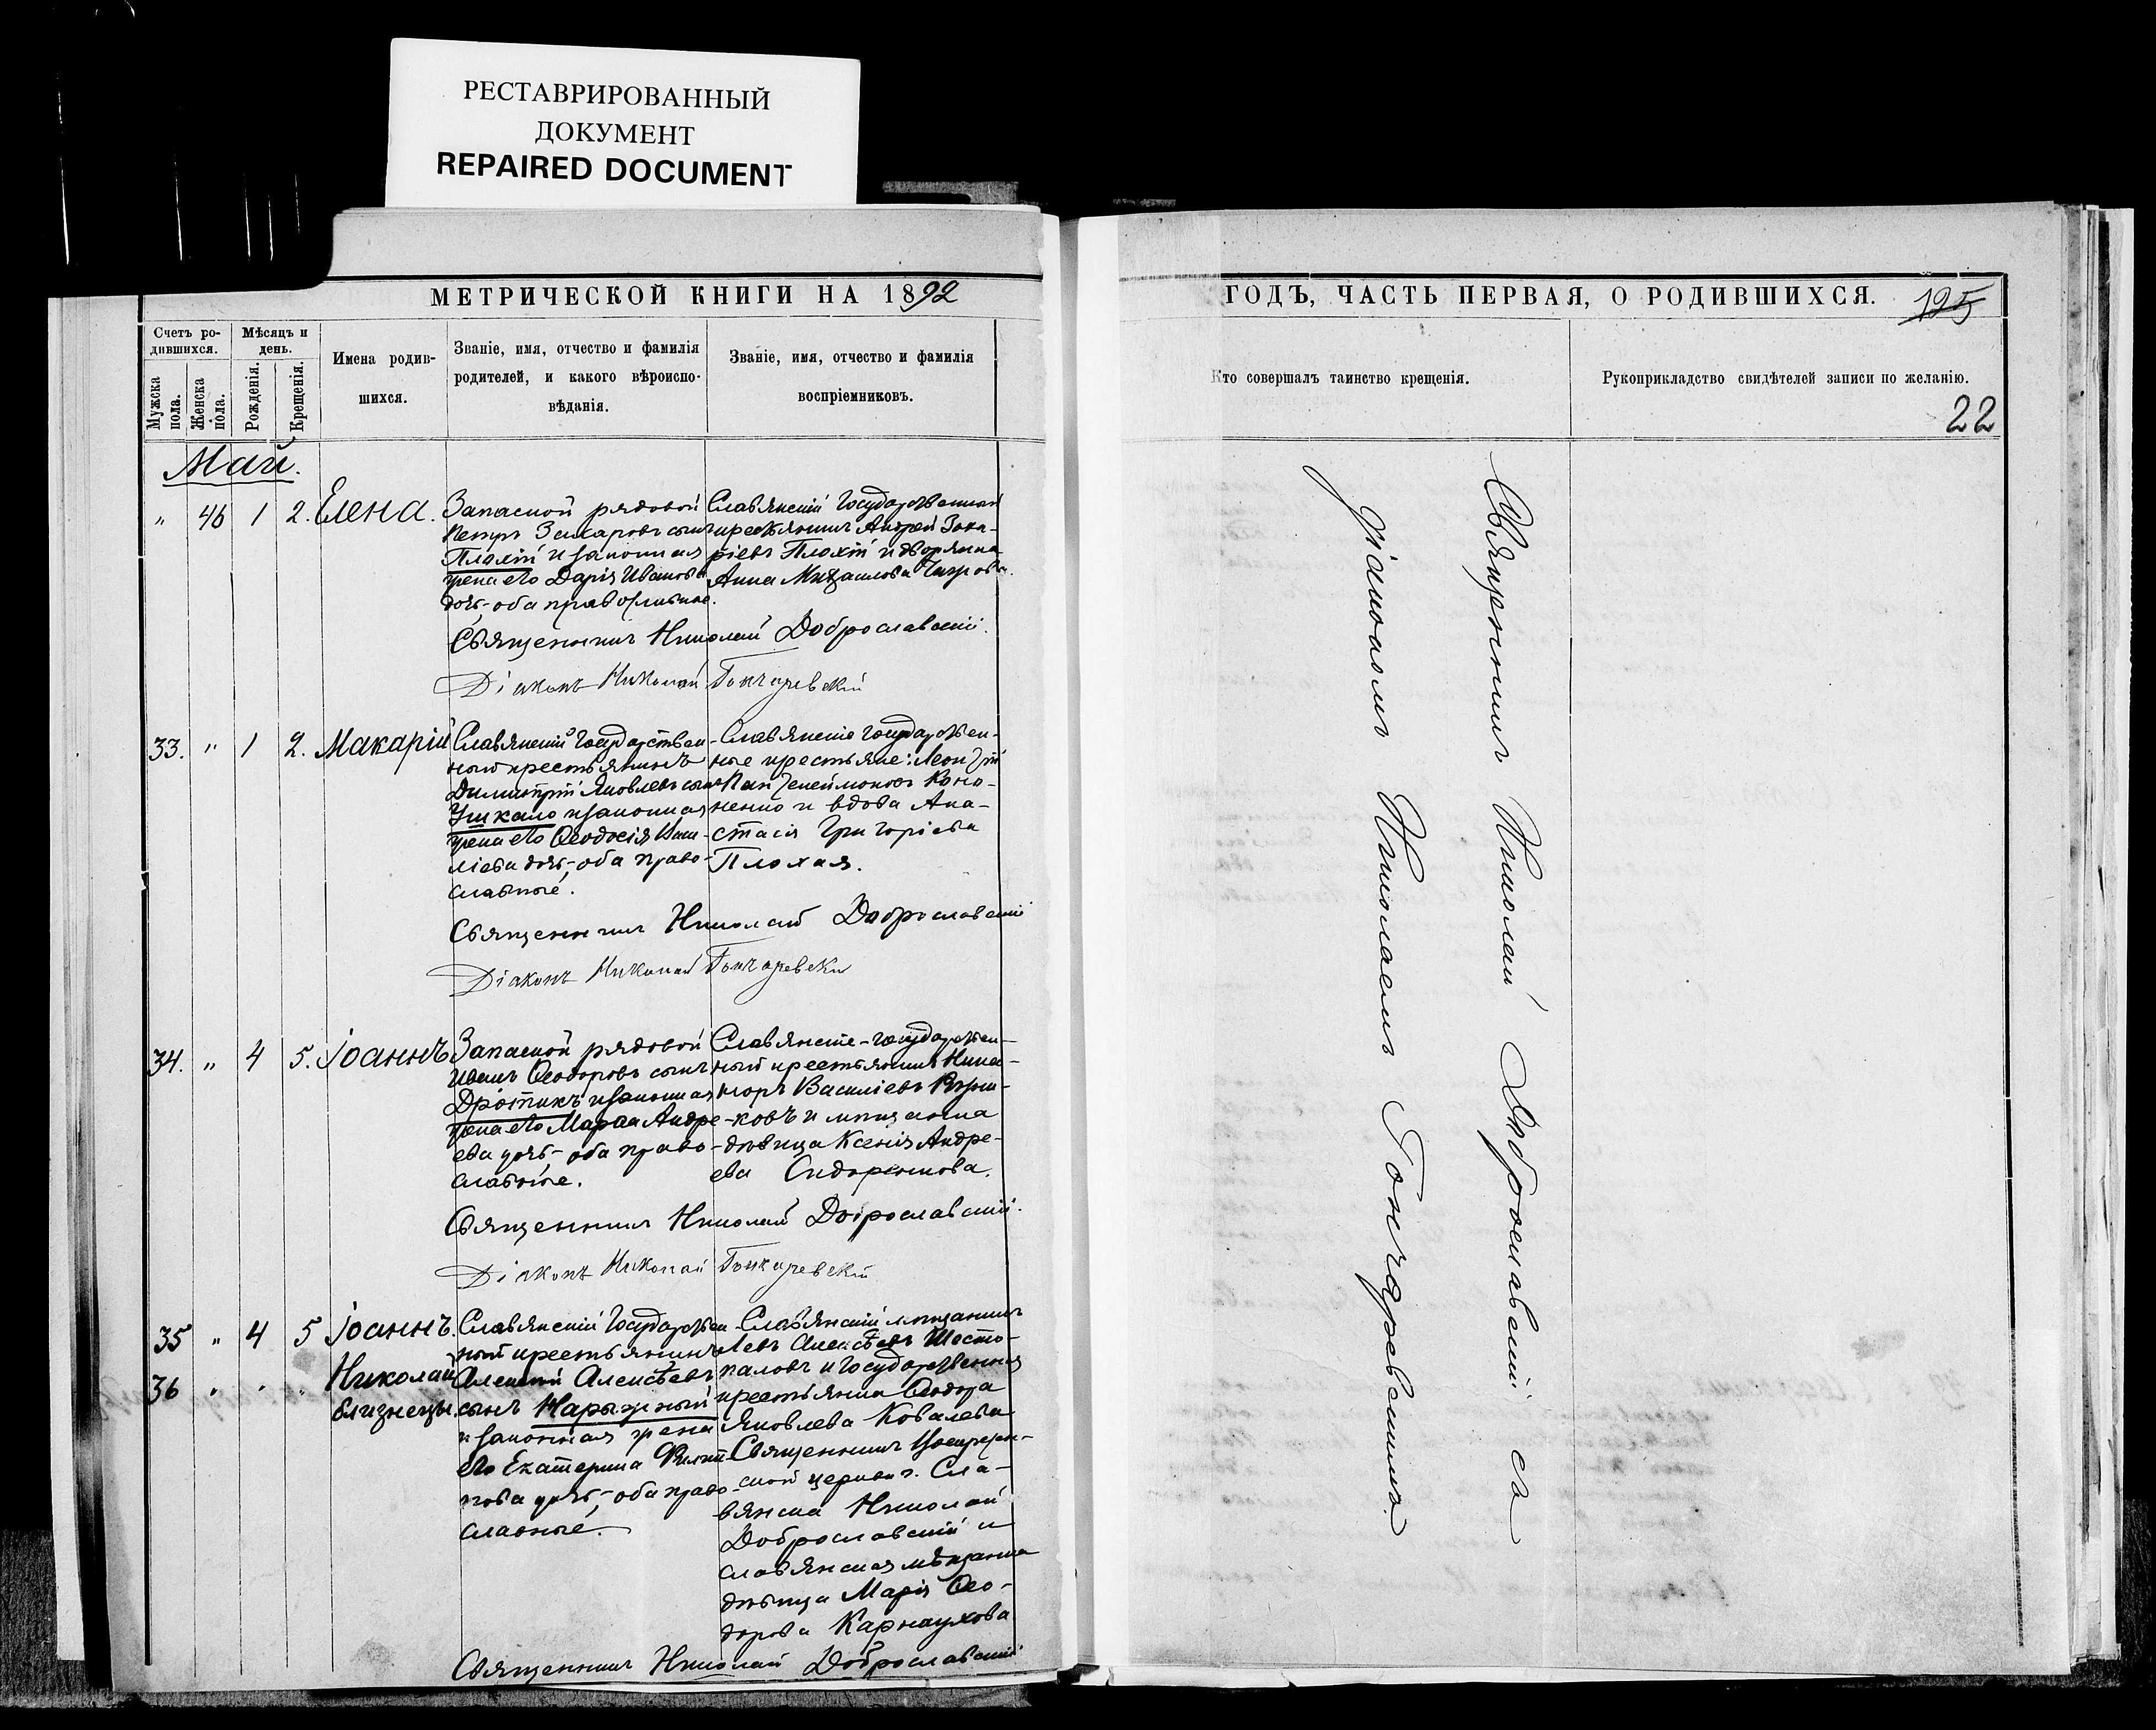 РЕСТАВРИРОВАННЫЙ
ДОКУМЕНТ
REPAIRED DOCUMENT
МЕТРИЧЕСКОЙ КНИГИ НА 1892
ГОДЪ, ЧАСТЬ ПЕРВАЯ, О РОДИВШИХСЯ.
125
22
Счетъ ро-
дившихся.
Мужска
пола.
Женска
пола.
Мѣсяцъ и
день.
Рожденія.
Крещенія.
Имена родив-
шихся.
Званіе, имя, отчество и фамилія
родителей, и какого вѣроиспо-
вѣданія.
Званіе, имя, отчество и фамилія
воспріемниковъ.
Кто совершалъ таинство крещенія.
Рукоприкладство свидѣтелей записи по желанію.
Май.
" 46 1 2. Елена.
Запасной рядовой
Петръ Захаровъ сынъ
Плохій и законная
жена его Дарія Иванова
дочь, оба православные.
Славянскій государственный
крестьянинъ Андрей Заха-
ріевъ Плохій и дворянка
Анна Михаилова
Священникъ Николай Доброславскій.
Діаконъ Николай Гончаревскій
33. " 1 2. Макарій
Славянскій государствен-
ный крестьянинъ
Димитрій Яковлевъ сынъ
Ушкало и законная
жена его Ѳеодосія Васи-
ліева дочь, оба право-
славные.
Славянскіе государствен-
ные крестьяне: Леонтій
Пантелеймоновъ Коно-
ненко и вдова Ана-
стасія Григоріева
Плохая.
Священникъ Николай Доброславскій
Діаконъ Николай Гончаревскій
34. " 4 5. Іоаннъ
Запасной рядовой
Иванъ Ѳеодоровъ сынъ
Дротикъ и законная
жена его Марѳа Андре-
ева дочь, оба право-
славные.
Славянскіе - государствен-
ный крестьянинъ Ника-
норъ Василіевъ
ковъ и мѣщанка
дѣвица Ксенія Андре-
ева Сидоренкова.
Священникъ Николай Доброславскій.
Діаконъ Николай Гончаревскій
35 " 4 5 Іоаннъ.
36 " " " Николай
близнецы.
Славянскій государствен-
ный крестьянинъ
Алексій Алексѣевъ
сынъ Нарыжный
и законная жена
его Екатерина Филип-
пова дочь, оба право-
славные.
Славянскій мѣщанинъ
Левъ Алексѣевъ Шесто-
паловъ и государственная
крестьянка Ѳеодора
Яковлева Ковалева
Священникъ Воскресен-
ской церкви г. Сла-
вянска Николай
Доброславскій и
славянская мѣщанка
дѣвица Марія Ѳео-
дорова Карнаухова
Священникъ Николай Доброславскій
Священникъ Николай Доброславскій съ
діакономъ Николаемъ Гончаревскимъ.